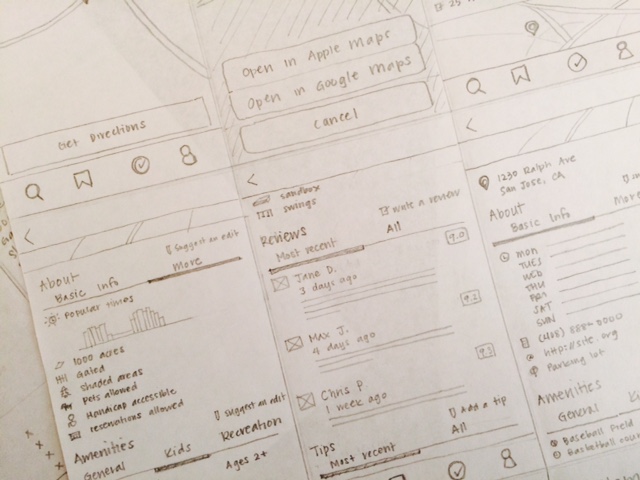 Get Directions
Suggest an edit
About
Basic Info
More
Popular times
1000 acres
Gated
Shaded areas
Pets allowed
Handicap accessible
reservations allowed
Suggest an edit
Amenities
General
Kids
Recreation
Ages 2+
Open in Apple Maps
Open in Google Maps
Cancel
sandbox
swings
write a review
Reviews
Most recent
All
Jane D.
3 days ago
9.0
Max J.
4 days ago
9.2
Chris P.
1 week ago
9.2
Add a tip
Tips
Most recent
All
1230 Ralph Ave
San Jose, CA
About
Basic Info
More
MON
TUES
WED
THU
FRI
SAT
SUN
(408) 888-0000
http://site.org
Parking lot
Amenities
General
Baseball Field
Basketball cour